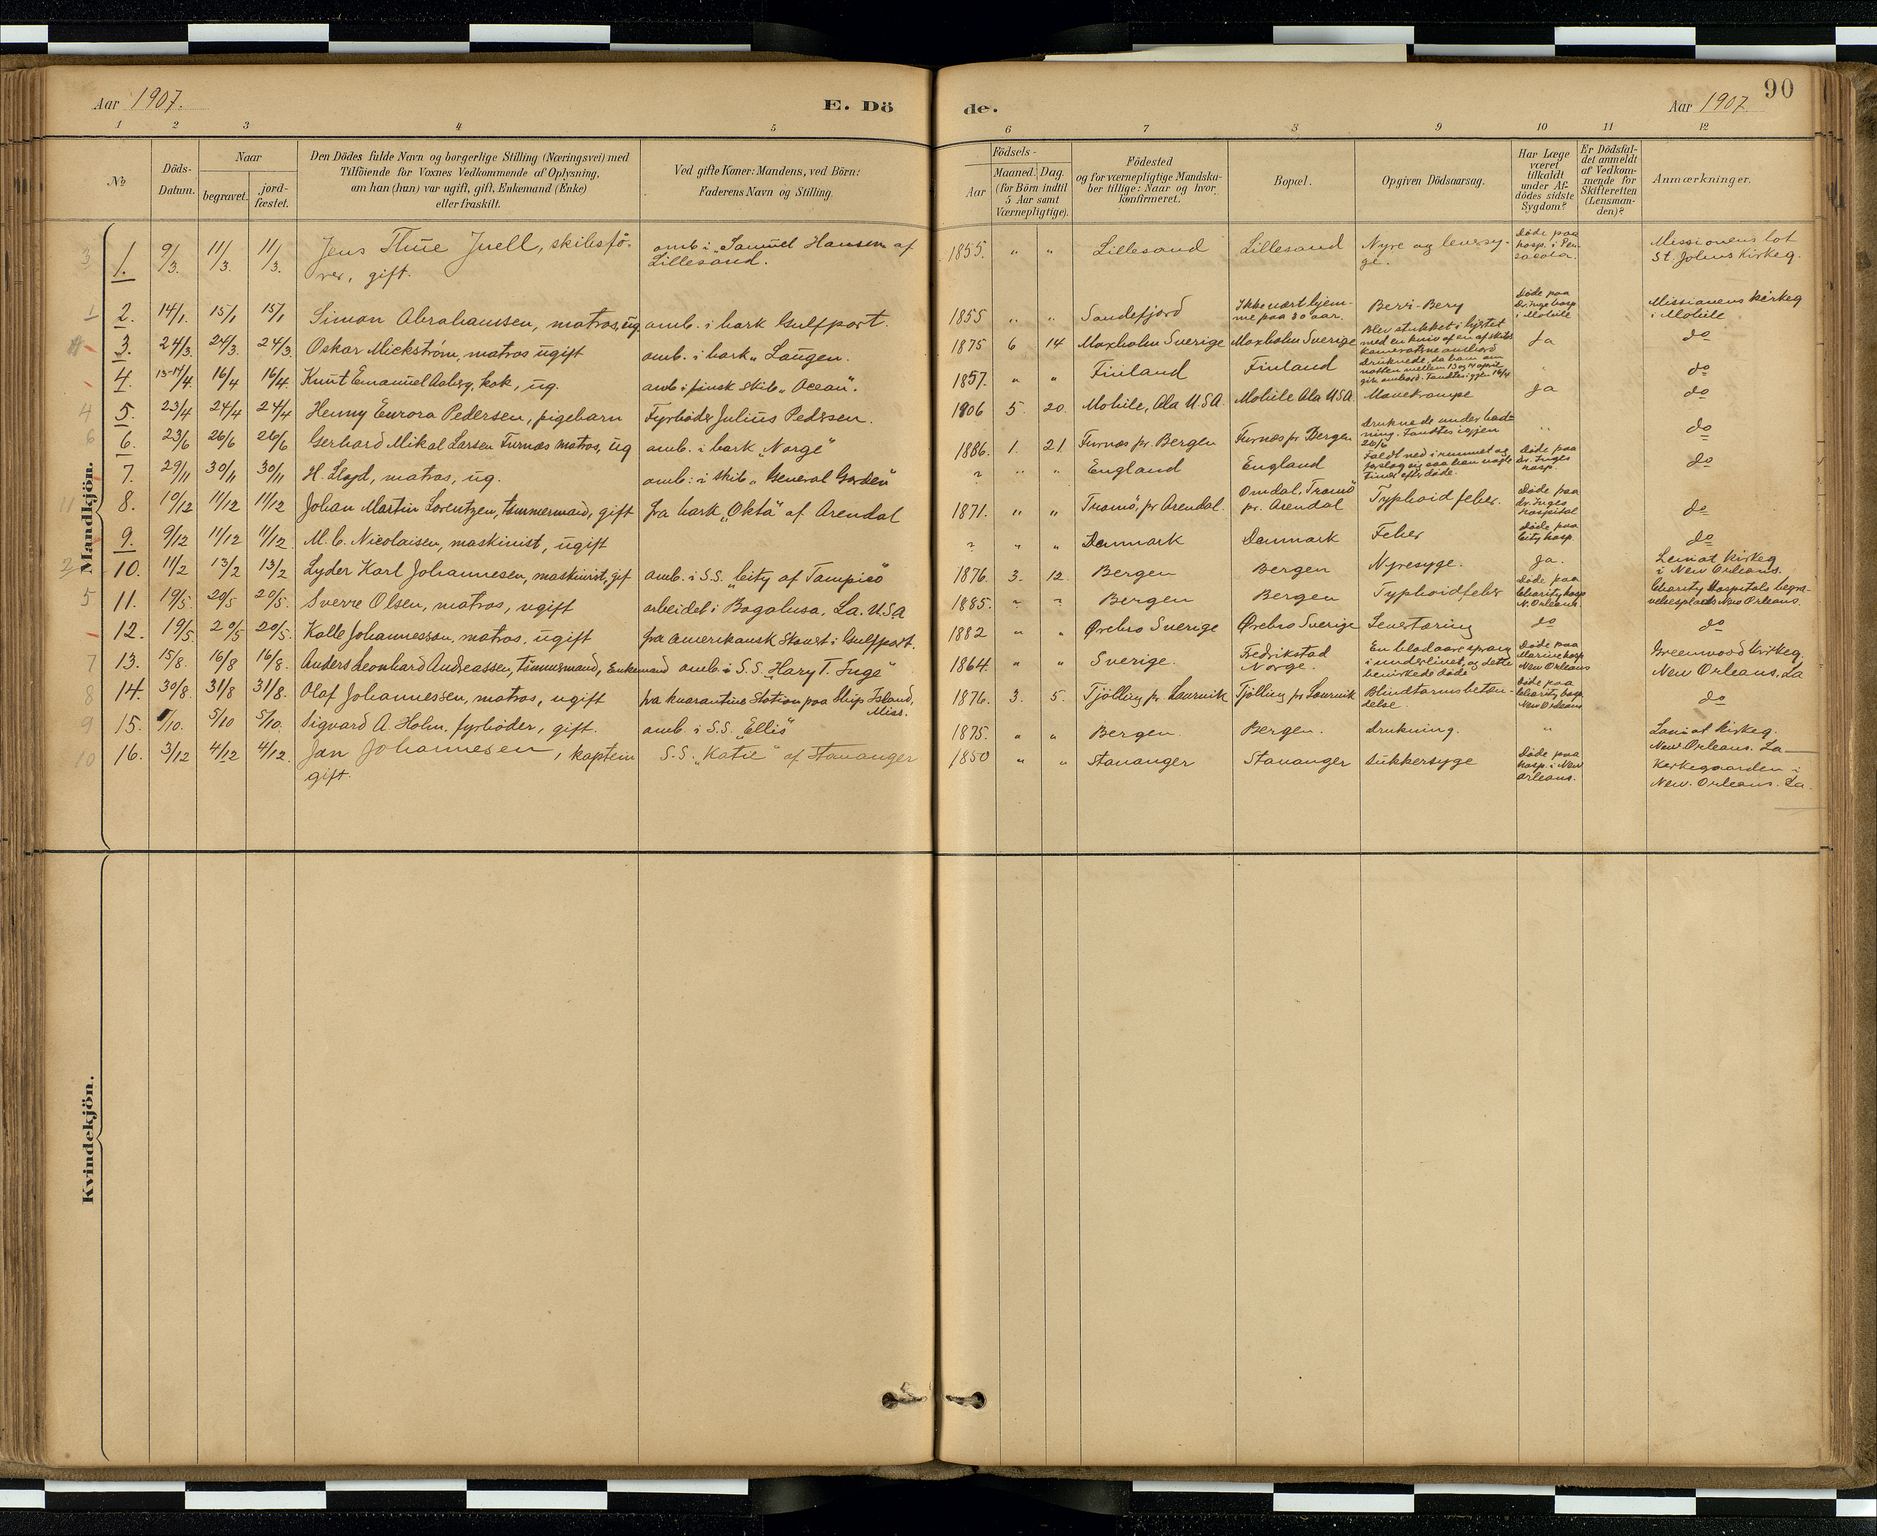 90
Aar 1907. E. Dö de. Aar 1907.
1 2 3 4 5 6 7 8 9 10 11 12
No
Döds-Datum.
Naar
begravet.
jordfæstet.
Den Dödes fulde Navn og borgerlige Stilling (Næringsvei) med
Tilföiende for Voxnes Vedkommende af Oplysning,
om han (hun) var ugift, gift, Enkemand (Enke)
eller fraskilt.
Ved gifte Koner: Mandens, ved Börn:
Faderens Navn og Stilling.
Födsels-
Aar
Maaned. Dag.
(for Börn indtil
5 Aar samt
Værnepligtige).
Födested
og for værnepligtige Mandskaber tillige: Naar og hvor
konfirmeret.
Bopæl.
Opgiven Dödsaarsag.
Har Læge
været
tilkaldt
under Afdödes sidste
Sygdom?
Er Dödsfaldet anmeldt
af Vedkommende for
Skifteretten
(Lensmanden)?
Anmærkninger.
Mandkjön.
3 1. 9/3. 11/3. 11/3. Jens Thue Juell, skibsförer, gift. omb. i "Samuel Hansen" af Lillesand. 1855. " " Lillesand Lillesand Nyre og leversyge. Døde paa hosp. i Pensacola. Missionens lot St. Johns Kirkeg.
1 2. 14/1. 15/1 15/1 Simon Abrahamsen, matros, ug. omb. i bark Gulfport. 1855 " " Sandefjord Ikke vært hjemme paa 30 aar. Beri-Bery Døde paa Dr. Inges hosp. i Mobile Missionens kirkeg i Mobile
3. 24/3. 24/3. 24/3. Oskar Mickström, matros ugift omb. i bark "Laugen. 1875 6 14 Maxholm Sverige Maxholm Sverige Blev stukket i hjertet med en kniv af en af skibskameraterne ombord Ja do
4. 13-14/4. 16/4 16/4. Knut Emanuel Aaberg, kok, ug. omb. i finsk skib "Ocean". 1857. " " Finland Finland Druknede, da ham om natten mellem 13 og 14 april gik ombord. Fandtes igjen 16/4 " do
4 5. 23/4 24/4 24/4 Henny Eurora Pedersen, pigebarn Fyrbøder Julius Pedersen. 1906 5. 20. Mobile, Ala U.S.A. Mobile Ala U.S.A. Mavekrampe Ja do
6 6. 23/6 26/6 26/6 Gerhard Mikal Larsen Turnæs matros, ug omb. i bark "Norge" 1886. 1. 21. Turnæs pr. Bergen Turnæs pr. Bergen Druknede under badning. Fandtes igjen 26/6 " do
7. 29/11 30/11 30/11 H. Lloyd, matros, ug. omb: i skib "General Gordon" ? " " England England Faldt ned i rummet og forslog sig saa han nogle timer efter døde. Døde paa Dr. Inges hosp. do
11 8. 10/12 11/12 11/12 Johan Martin Lorentzen, tømmermand, gift fra bark "Okta" af Arendal 1871. " " Tromö, pr Arendal. Omdal, Tromö pr. Arendal Typhoid feber. Døde paa Dr. Inges hospital do
9. 9/12 11/12 11/12. M. C. Nicolaisen, maskinist, ugift ? " " Danmark Danmark Feber Døde paa City hosp. do
2 10. 11/2 13/2 13/2 Lyder Karl Johannesen, maskinist, gif omb. i S.S. "City of Tampico" 1876. 3. 12. Bergen Bergen Nyresyge. Ja. kirkeg i New Orleans.
5 11. 19/5. 20/5 20/5. Sverre Olsen, matros, ugift arbeidet i Bogalusa, La. U.S.A 1885. " " Bergen Bergen Typhoidfeber Døde paa Charity hosp N. Orleans. Charity Hospitals begravelsesplads New Orleans.
12. 19/5. 20/5 20/5. Kalle Johannesson, matros, ugift fra amerikansk Skonert i Gulfport. 1882 " " Örebro Sverige Örebro Sverige Levertæring do do
7 13. 15/8. 16/8 16/8. Anders Leonhard Andreassen, tømmermand, Enkemand omb. i S.S. Harry T. Inge" 1864. " " Sverige. Fredrikstad Norge. En blodaare sprang i underlivet, og dette bevirkede døde Døde paa Marinehosp New Orleans Greenwood kirkeg. New Orleans. La
8 14. 30/8. 31/8 31/8. Olaf Johannessen, matros, ugift fra kvarantine Station paa Ship Island, Miss. 1876. 3. 5. Tjölling pr. Laurvik Tjölling pr. Laurvik Blindtarmsbetændelse. Døde paa Charity hosp. New Orleans do
9 15. /10. 5/10 5/10. Sigvard A. Holm, fyrbøder, gift. omb. i S.S. "Ellis" 1875. " " Bergen. Bergen. Drukning. " kirkeg. New Orleans. La
10 16. 3/12 4/12 4/12. Jan Johannesen, kaptein gift. S.S. "Katie" af Stavanger 1850 " " Stavanger Stavanger Sukkersyge Døde paa hosp. i New Orleans. Kirkegaarden i New. Orleans. La.
Kvindekjön.